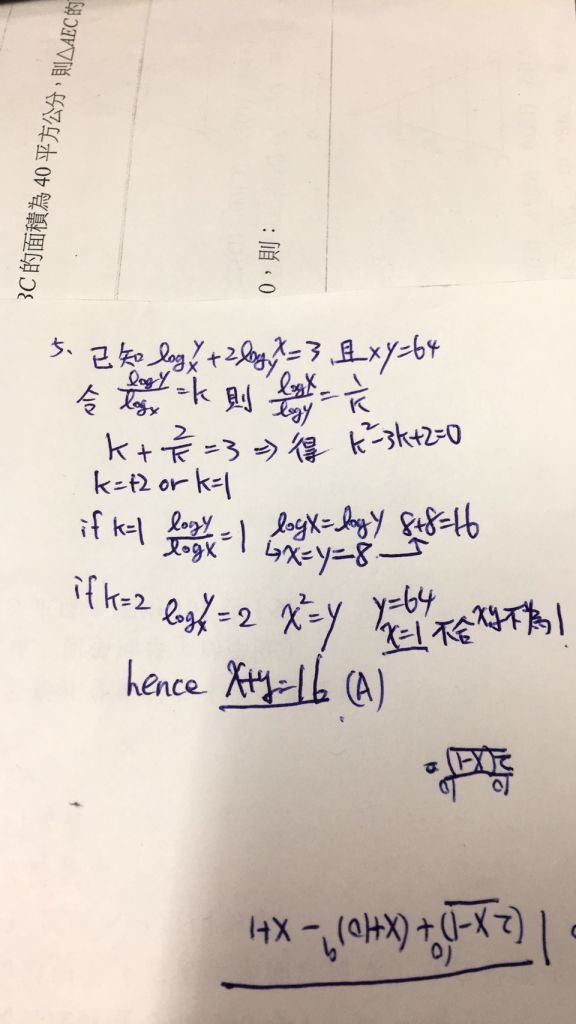 BC的面積為 40 平方公分，則△AEC的
0，則：
5、已知 logₓʸ + 2logᵧˣ = 3 且 xy=64
令 logy/logx = k 則 logx/logy = 1/k
k + 2/k = 3 ⇒ 得 k²-3k+2=0
k=+2 or k=1
if k=1 logy/logx = 1 logx=logy 8+8=16
↳x=y=8
if k=2 logₓʸ = 2 x²=y y=64
x=1 不合 xy不為1
hence x+y=16 (A)